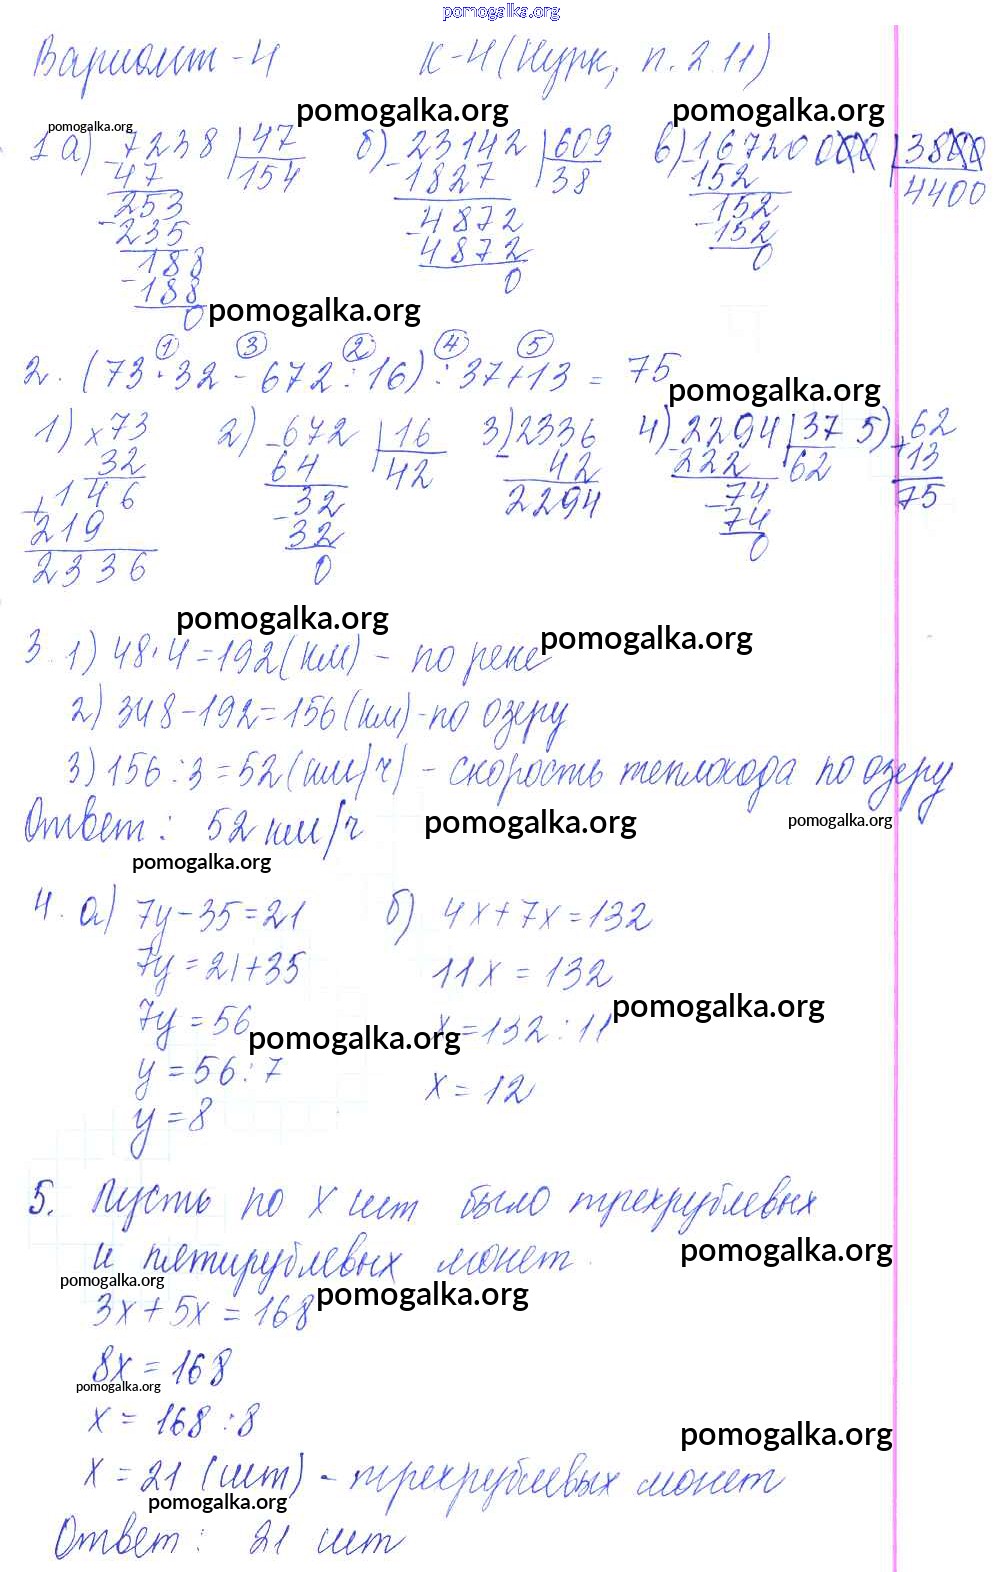 pomogalka.org
Вариант - 4 К-4 (Нурк, п. 2.11)
pomogalka.org pomogalka.org
pomogalka.org
1 а) 7238 | 47 б) 23142 | 609 в) 16720000 | 3800
- 47 154 - 1827 38 - 152 4400
253 4872 152
- 235 - 4872 - 152
188 0 0
- 188
0
pomogalka.org
① ③ ② ④ ⑤
2. (73 · 32 - 672 : 16) : 37 + 13 = 75
pomogalka.org
1) × 73 2) - 672 | 16 3) - 2336 4) - 2294 | 37 5) + 62
32 64 42 42 222 62 13
+ 146 - 32 2294 - 74 75
219 32 74
2336 0 0
pomogalka.org
pomogalka.org
3. 1) 48 · 4 = 192 (км) - по реке
2) 348 - 192 = 156 (км) - по озеру
3) 156 : 3 = 52 (км/ч) - скорость теплохода по озеру
Ответ: 52 км/ч
pomogalka.org pomogalka.org
pomogalka.org
4. а) 7y - 35 = 21 б) 4x + 7x = 132
7y = 21 + 35 11x = 132
7y = 56 x = 132 : 11
pomogalka.org pomogalka.org
y = 56 : 7 x = 12
y = 8
5. Пусть по x шт было трехрублевых
и пятирублевых монет.
pomogalka.org
pomogalka.org
pomogalka.org
3x + 5x = 168
8x = 168
pomogalka.org
x = 168 : 8
pomogalka.org
x = 21 (шт) - трехрублевых монет
pomogalka.org
Ответ: 21 шт